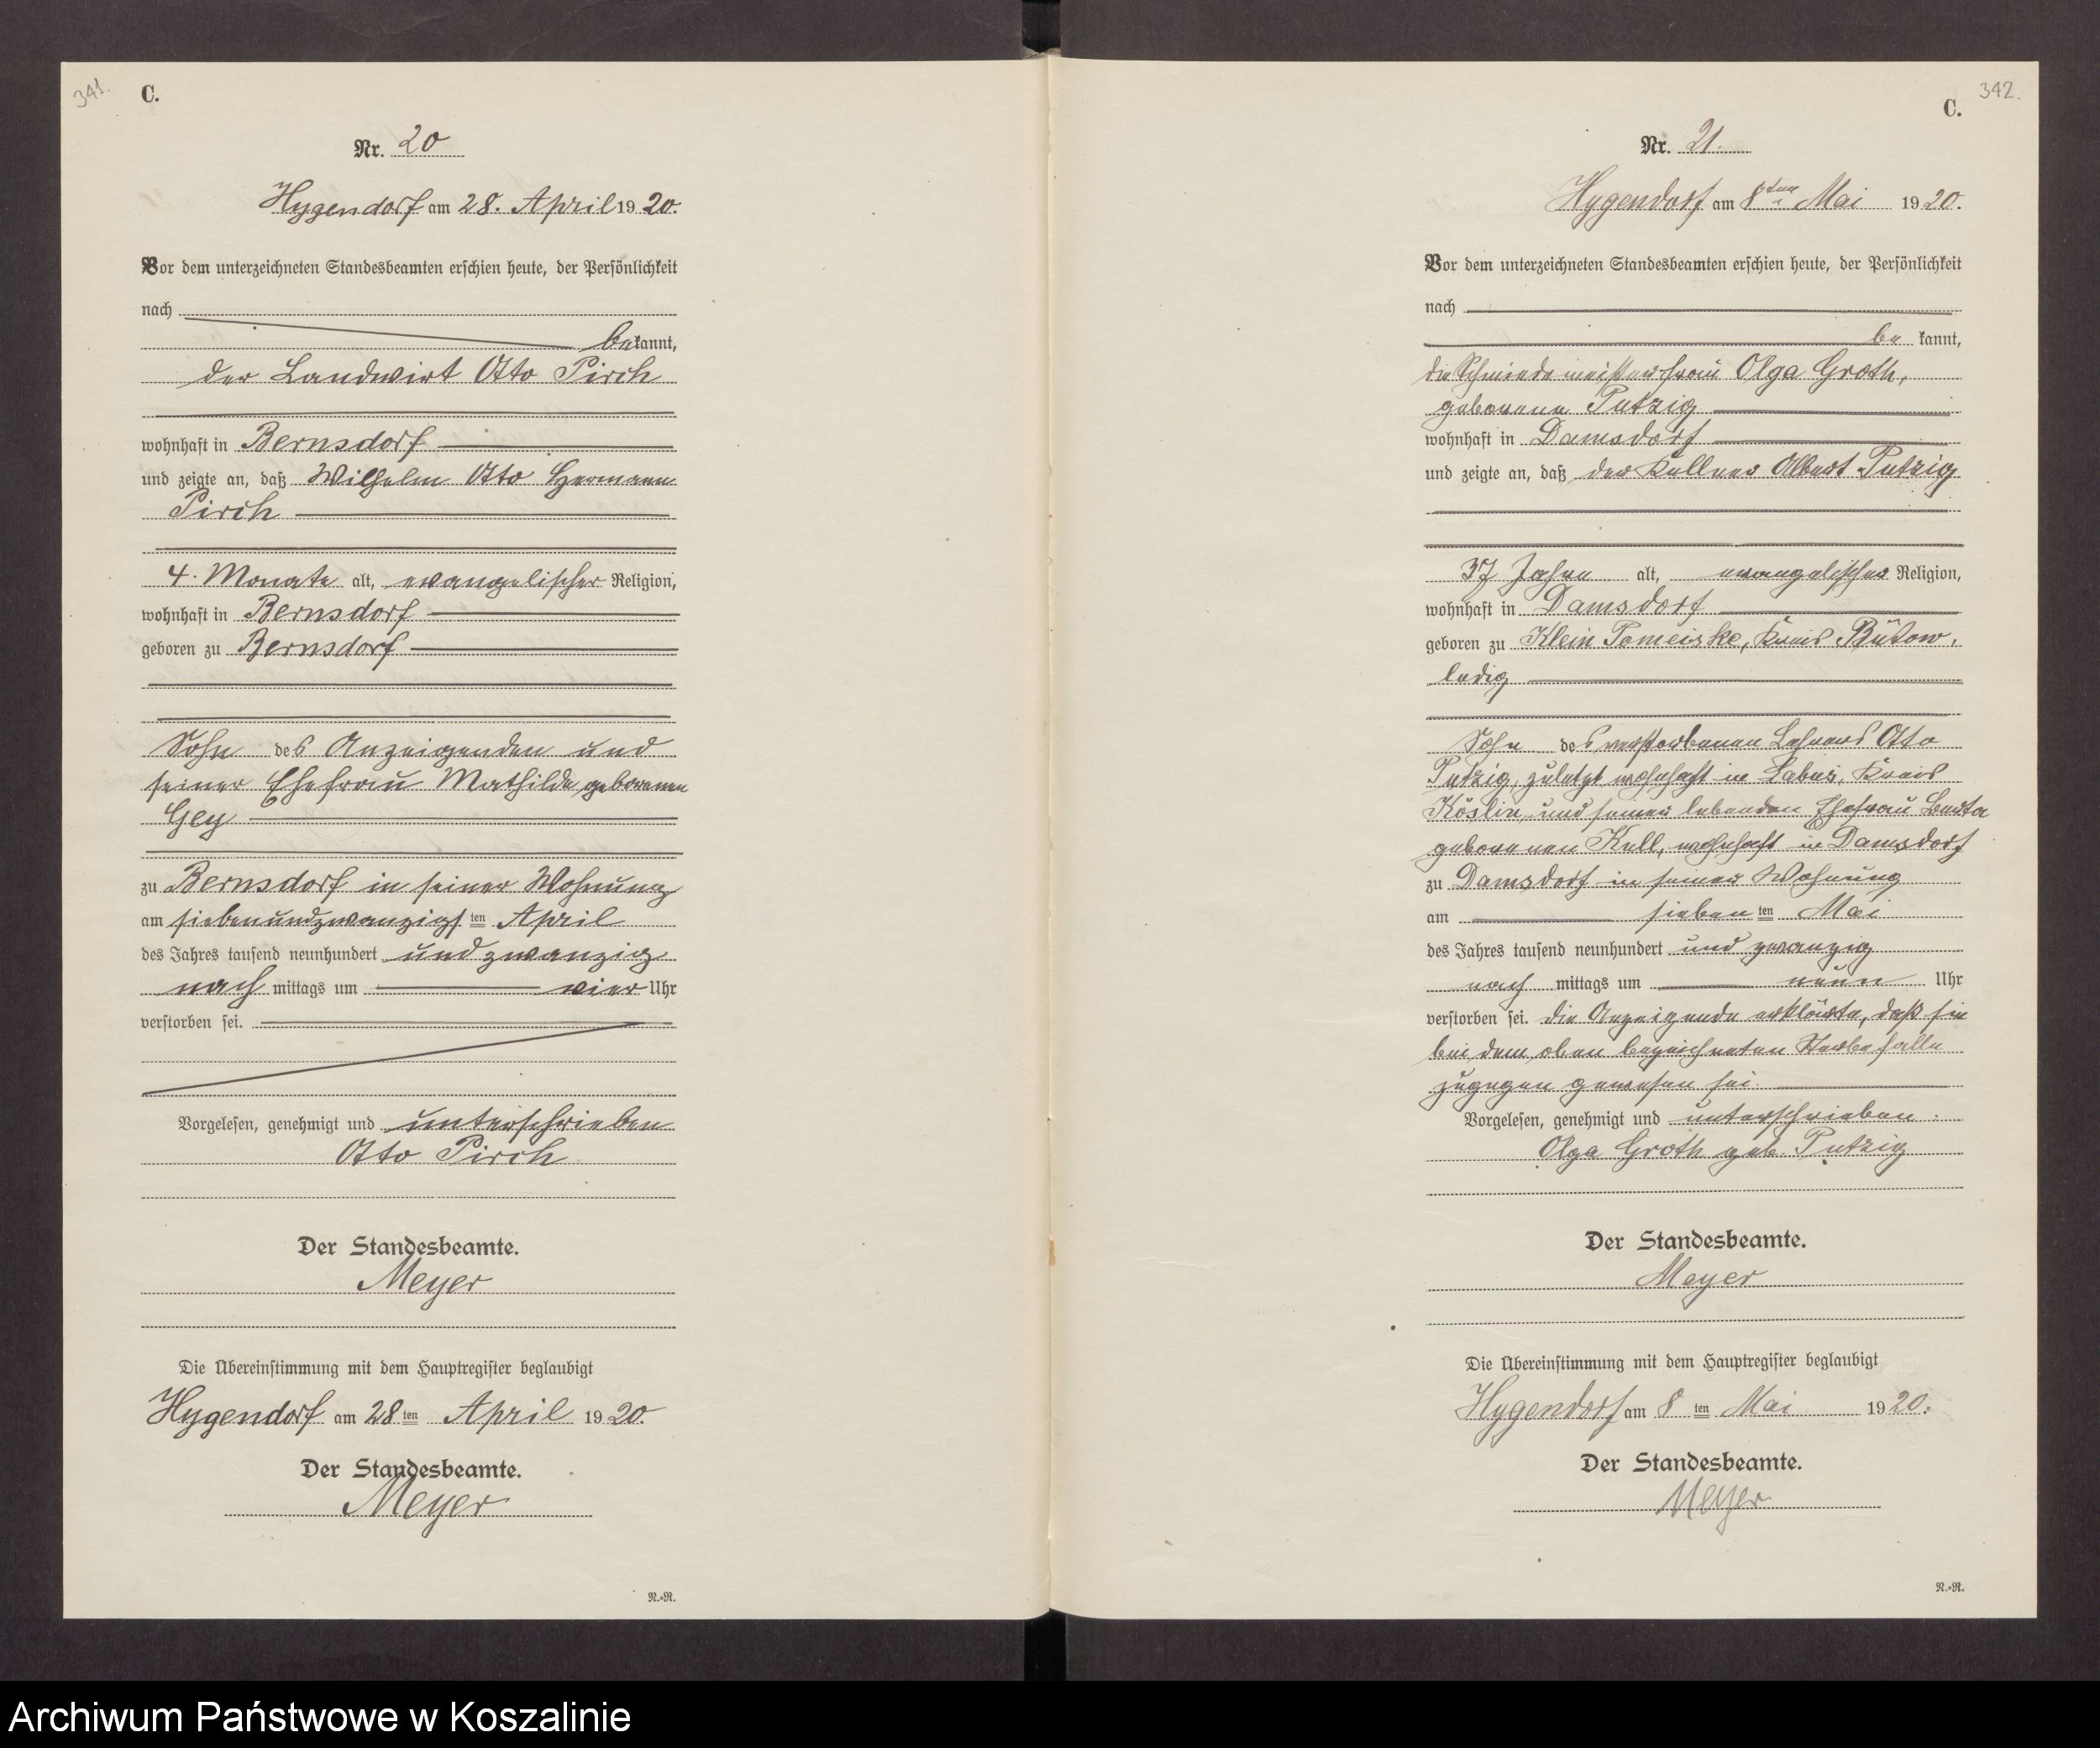 341.
C.
Nr. 20
Hygendorf am 28. April 1920.
Vor dem unterzeichneten Standesbeamten erschien heute, der Persönlichkeit
nach
bekannt,
der Landwirt Otto Pirch
wohnhaft in Bernsdorf
und zeigte an, daß Wilhelm Otto Hermann
Pirch
4. Monate alt, evangelischer Religion,
wohnhaft in Bernsdorf
geboren zu Bernsdorf
Sohn des Anzeigenden und
seiner Ehefrau Mathilde geborenen
Gey
zu Bernsdorf in seiner Wohnung
am siebenundzwanzigsten April
des Jahres tausend neunhundert und zwanzig
nachmittags um vier Uhr
verstorben sei.
Vorgelesen, genehmigt und unterschrieben
Otto Pirch
Der Standesbeamte.
Meyer
Die Übereinstimmung mit dem Hauptregister beglaubigt
Hygendorf am 28ten April 1920.
Der Standesbeamte.
Meyer
N.=N.
342.
C.
Nr. 21.
Hygendorf am 8ten Mai 1920.
Vor dem unterzeichneten Standesbeamten erschien heute, der Persönlichkeit
nach
bekannt,
die Schmiedemeisterfrau Olga Groth,
geborene Putzig
wohnhaft in Damsdorf
und zeigte an, daß der Kellner Albert Putzig
37 Jahre alt, evangelischer Religion,
wohnhaft in Damsdorf
geboren zu Klein Pomeiske, Kreis Bütow,
ledig
Sohn des verstorbenen Lehrers Otto
Putzig, zuletzt wohnhaft in Labus, Kreis
Köslin, und seiner lebenden Ehefrau Berta
geborenen Kull, wohnhaft in Damsdorf
zu Damsdorf in seiner Wohnung
am siebenten Mai
des Jahres tausend neunhundert und zwanzig
nachmittags um neun Uhr
verstorben sei. Die Anzeigende erklärte, daß sie
bei dem oben bezeichneten Sterbefalle
zugegen gewesen sei.
Vorgelesen, genehmigt und unterschrieben.
Olga Groth geb. Putzig
Der Standesbeamte.
Meyer
Die Übereinstimmung mit dem Hauptregister beglaubigt
Hygendorf am 8ten Mai 1920.
Der Standesbeamte.
Meyer
N.=N.
Archiwum Państwowe w Koszalinie